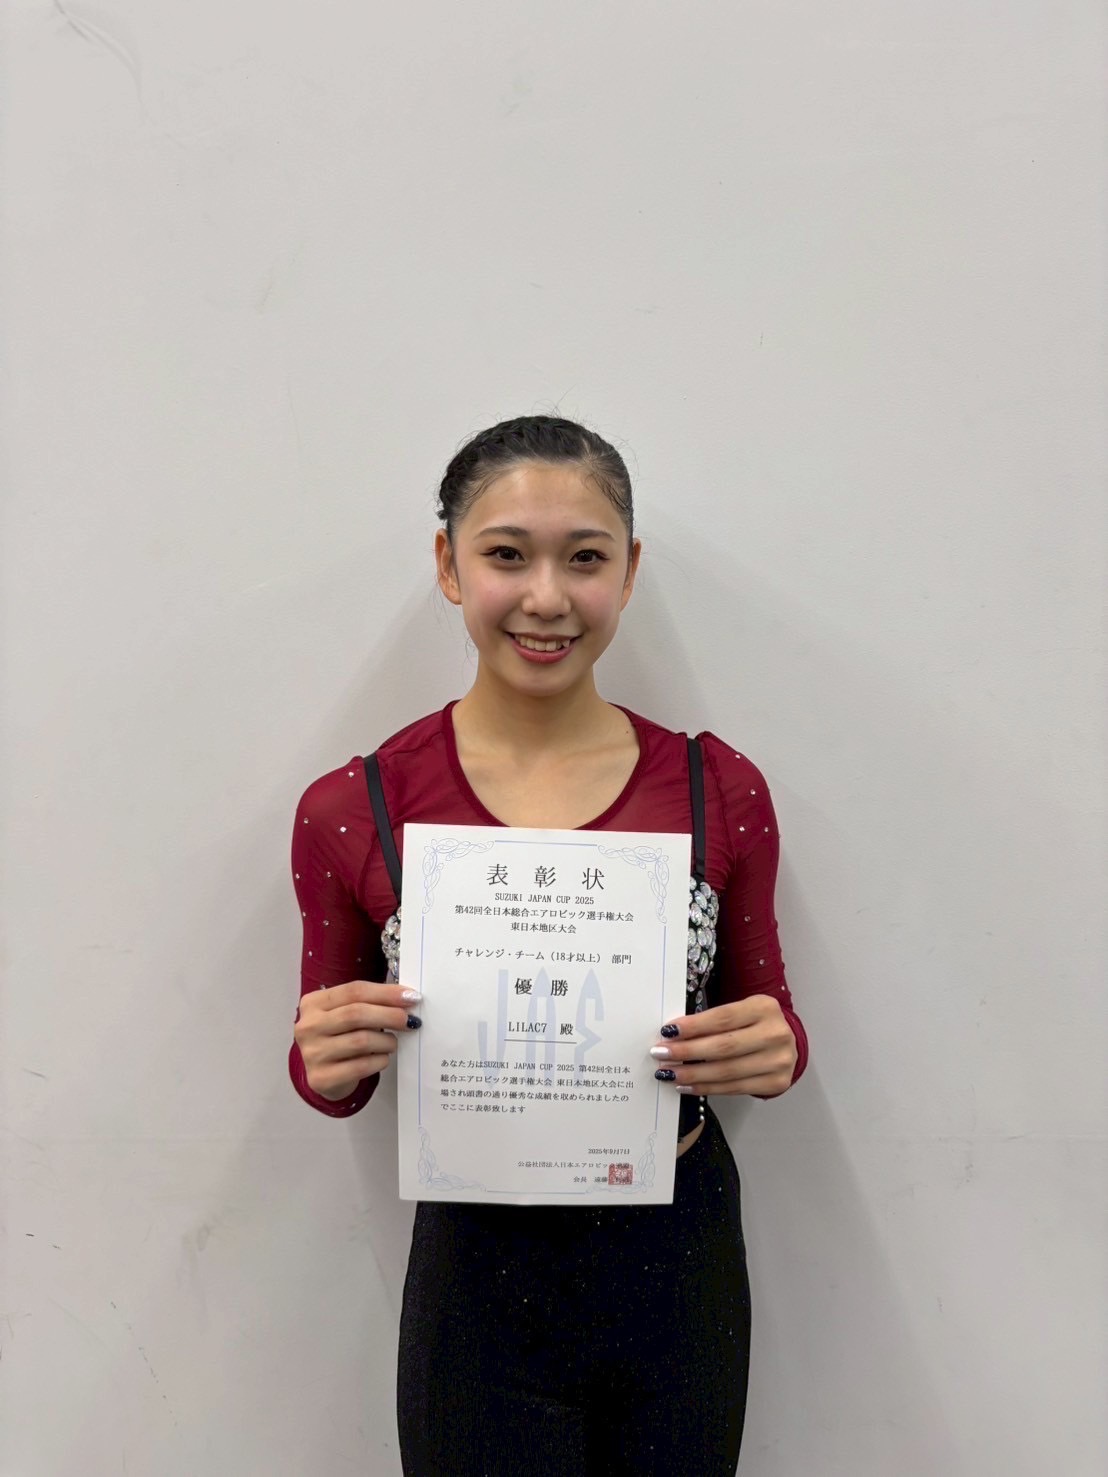 表彰状
SUZUKI JAPAN CUP 2025
第42回全日本総合エアロビック選手権大会
東日本地区大会
チャレンジ・チーム（18才以上） 部門
優勝
LILAC7 殿
あなた方はSUZUKI JAPAN CUP 2025 第42回全日本
総合エアロビック選手権大会 東日本地区大会に出
場され頭書の通り優秀な成績を収められましたの
でここに表彰致します
2025年9月7日
公益社団法人日本エアロビック
会長 遠藤